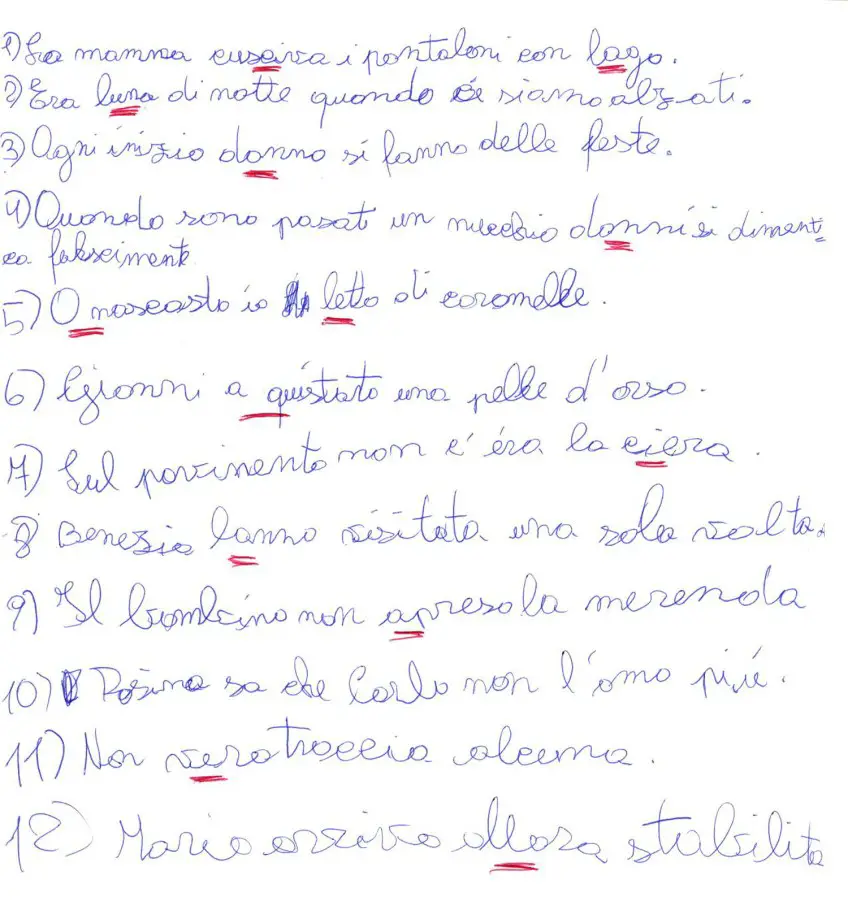 1) La mamma cusciva i pantaloni con lago.
2) Era luna di notte quando ci siamo alzati.
3) Ogni inizio danno si fanno delle feste.
4) Quando sono pasat un mucchio danni si dimenti
ca
5) O nascosto io letto di caramelle.
6) Gianni a quistato una pelle d'orso.
7) Sul pavimento non c'éra la ciera.
8 Benezia lanno visitata una sola volta.
9) Il bambino non apreso la merenda
10) Rosina sa che Carlo non l'amo più.
11) Non vera traccia alcuna.
12) Mario arriva allora stabilita